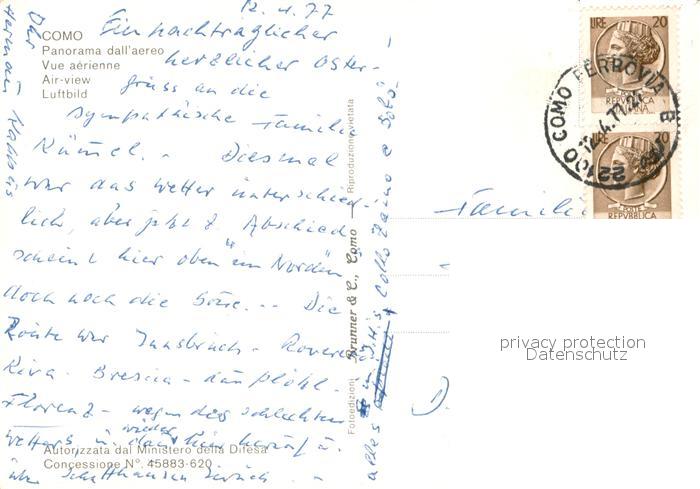 12.4.77
COMO
Panorama dall'aereo
Vue aérienne
Air-view
Luftbild
Ein nachträglicher
herzlicher Oster-
gruss an die
sympathische Familie
Kümel. - Diesmal
war das Wetter unterschied-
lich, aber jetzt z. Abschied
scheint hier oben "im Norden"
doch noch die Sonne... Die
Route war Innsbruck - Rovere
Riva - Brescia - dann plötzl.
Florenz - wegen des schlechten
Wetters u. wieder hier herauf u.
über Schaffhausen zurück. -
Autorizzata dal Ministero della Difesa
Concessione N°. 45883-620
Ihr
Hermann
alles
Fotoedizioni Brunner & C., Como — Riproduzione vietata
Familie
D.
LIRE 20
REPVBBLICA
22100 COMO FERROVIA B
12.4.77
20
REPVBBLICA
privacy protection
Datenschutz